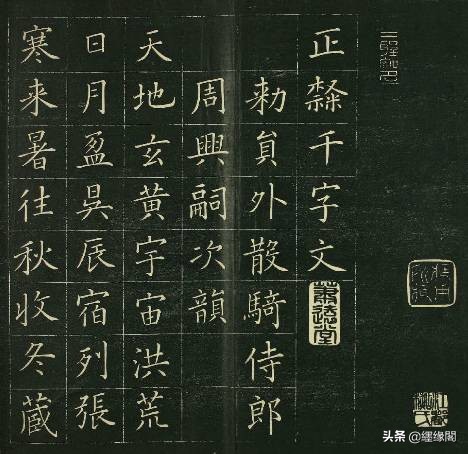 正隸千字文
敕員外散騎侍郎
周興嗣次韻
天地玄黃宇宙洪荒
日月盈昃辰宿列張
寒来暑往秋收冬蔵
头条 @纒缘閣